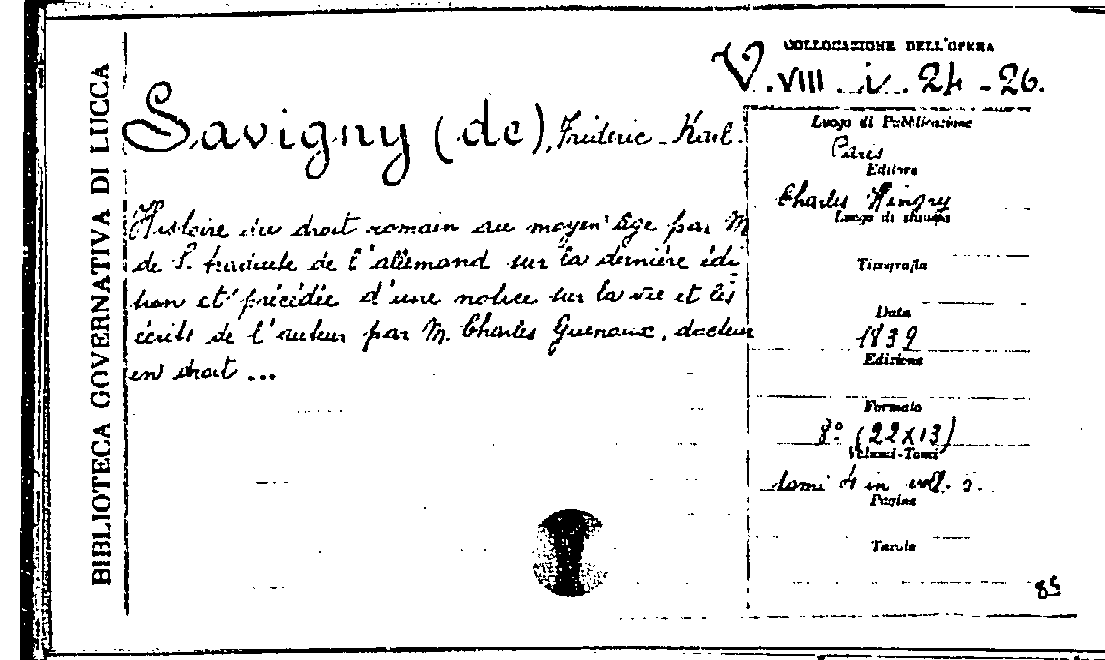 BIBLIOTECA GOVERNATIVA DI LUCCA
COLLOCAZIONE DELL'OPERA
V. VIII. i. 24-26.
Savigny (de), Fréderic-Karl.
Histoire du droit romain au moyen âge par M
de S. traduite de l'allemand sur la dernière édi
tion et précédée d'une notice sur la vie et les
écrits de l'auteur par M. Charles Guenoux, docteur
en droit ...
Luogo di Pubblicazione
Paris
Editore
Charles Hingry
Luogo di stampa
Tipografia
Data
1839
Edizione
Formato
8° (22x13)
Volumi-Tomi
tomi 4 in voll. 3.
Pagine
Tavole
85